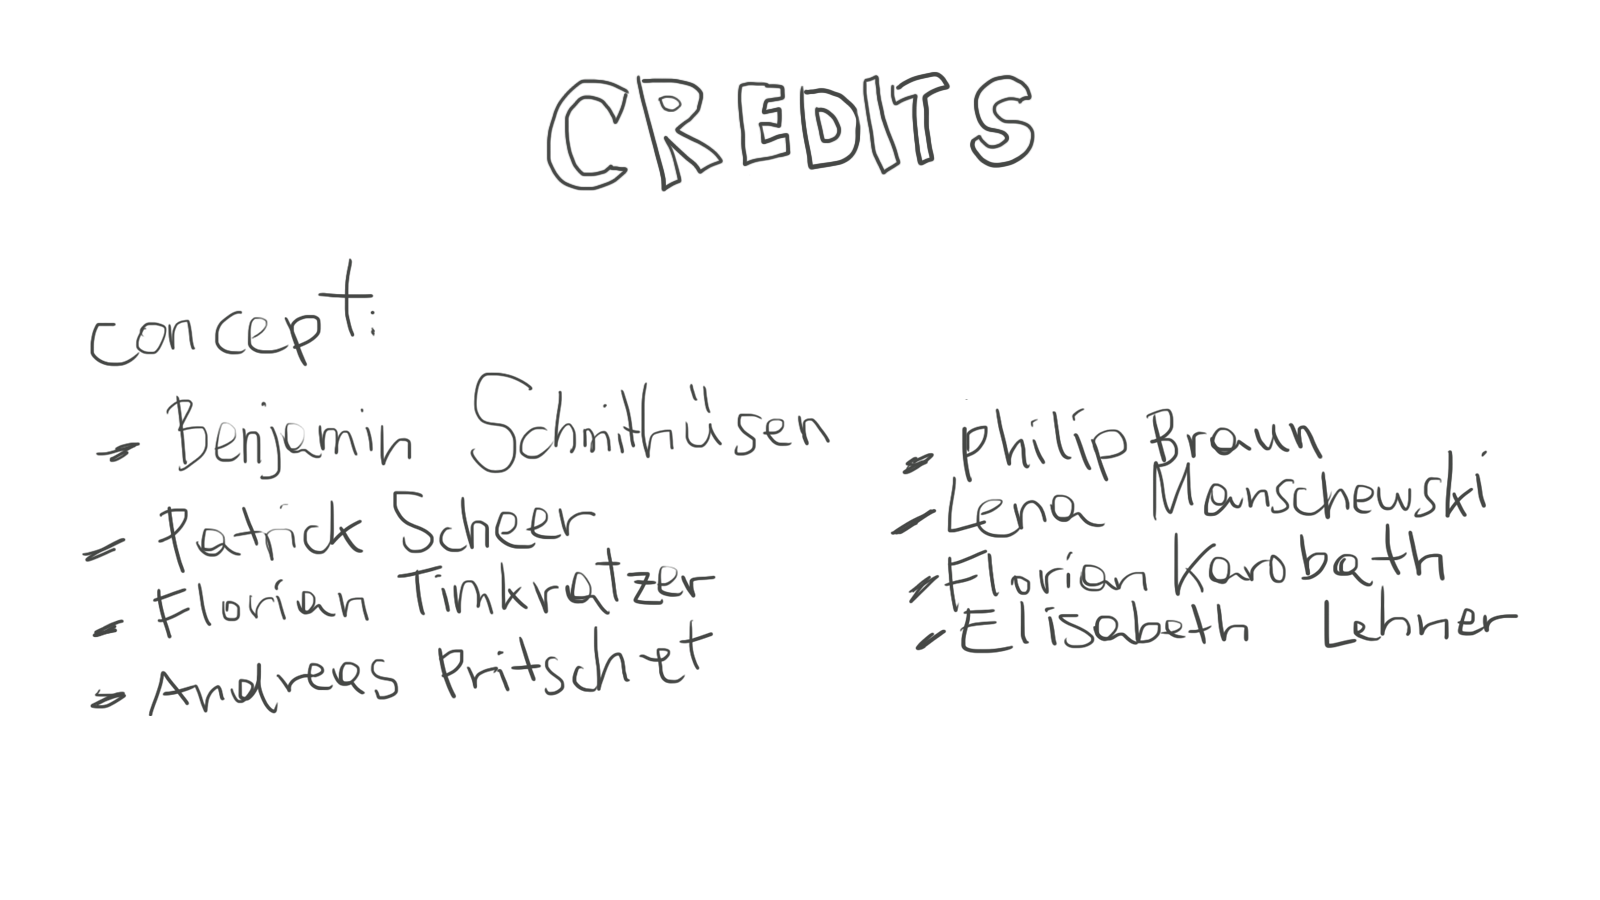 CREDITS
concept:
- Benjamin Schmithüsen
- Patrick Scheer
- Florian Timkratzer
- Andreas Pritschet
- Philip Braun
- Lena Manschewski
- Florian Karobath
- Elisabeth Lehner